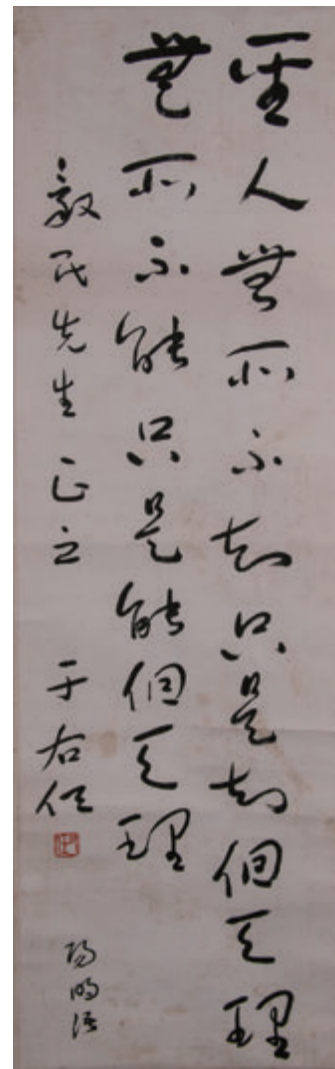 聖人無所不知只是知個天理
無所不能只是能個天理
毅民先生正之 于右任
陽明語